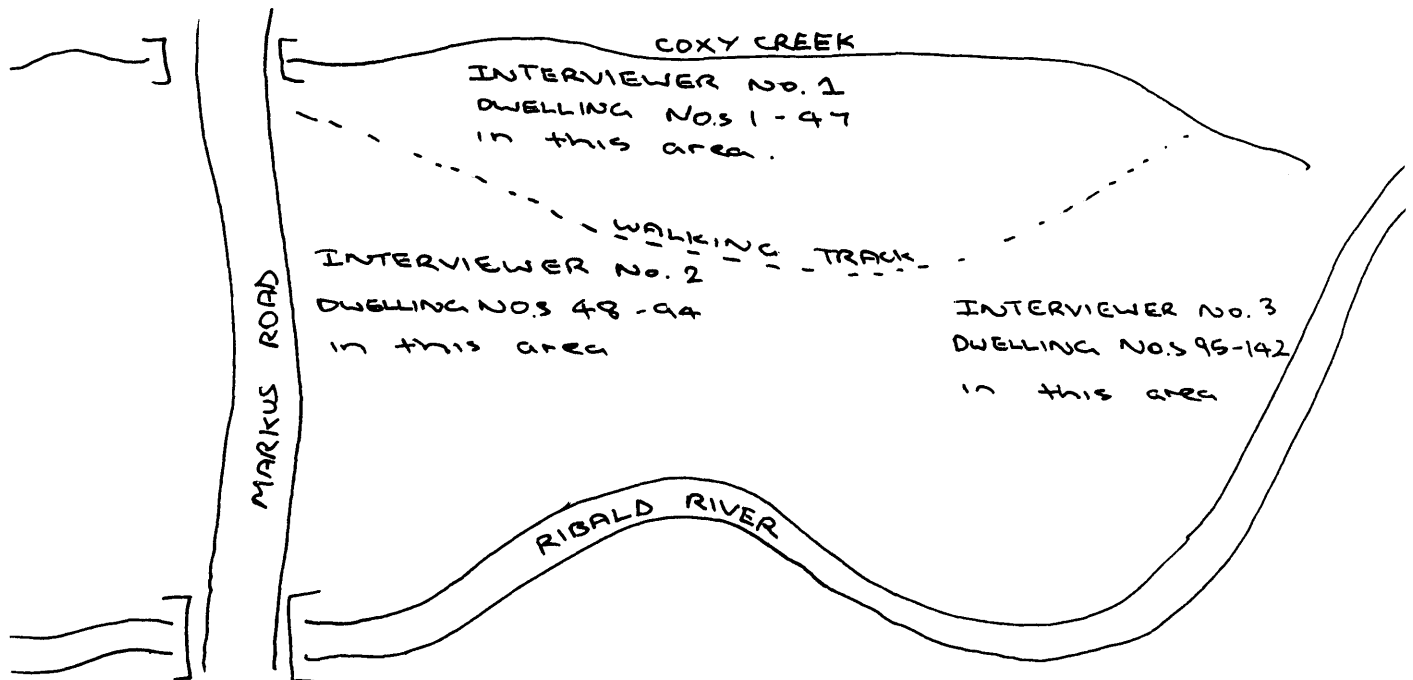 COXY CREEK
INTERVIEWER No. 1
DWELLING NO.s 1 - 47
in this area.
WALKING TRACK
INTERVIEWER No. 2
DWELLING NO.s 48 - 94
in this area
INTERVIEWER No. 3
DWELLING NO.s 95-142
in this area
MARKUS ROAD
RIBALD RIVER